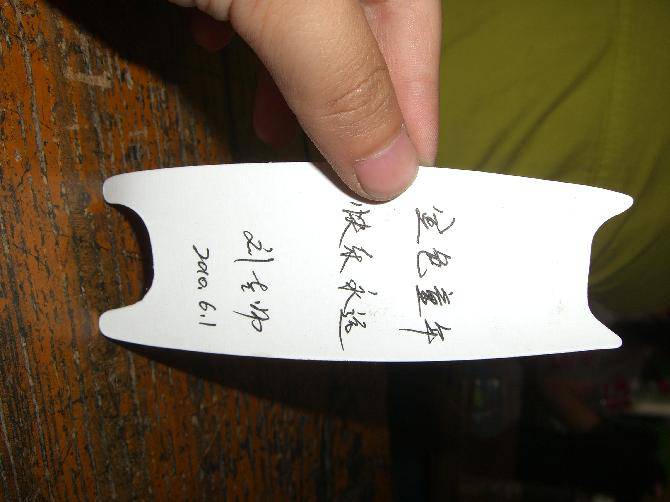 金色童年
快乐永远
刘老师
2010.6.1